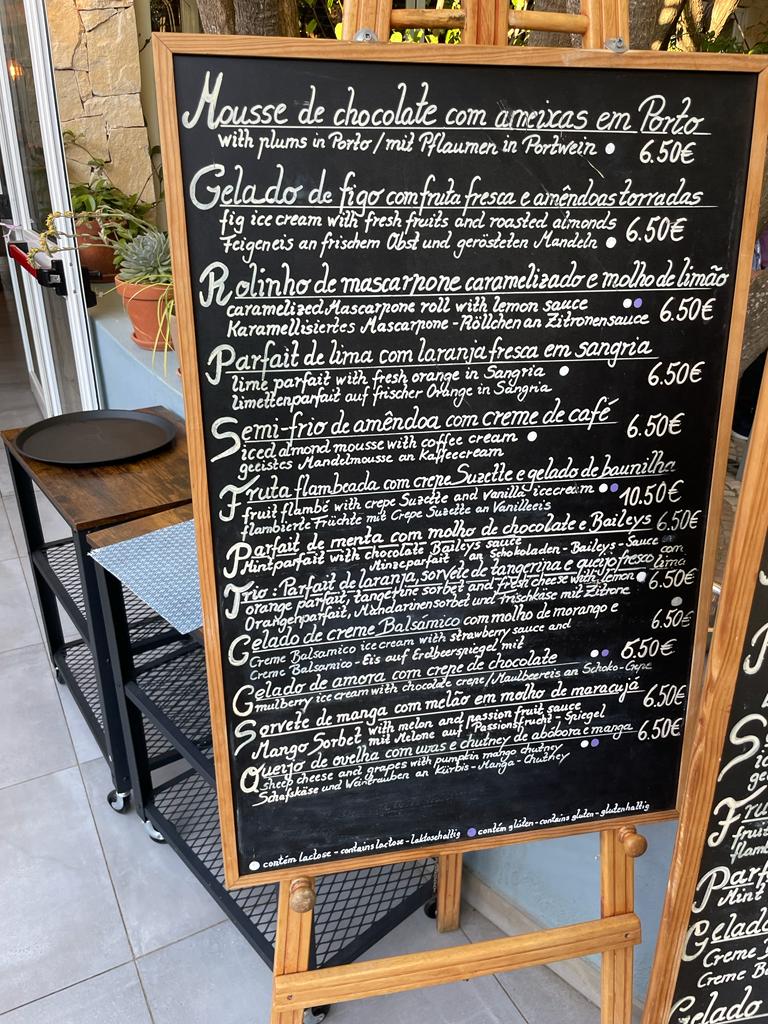 Mousse de chocolate com ameixas em Porto
with plums in Porto / mit Pflaumen in Portwein 6.50€
Gelado de figo com fruta fresca e amêndoas torradas
fig ice cream with fresh fruits and roasted almonds
Feigeneis an frischem Obst und gerösteten Mandeln 6.50€
Rolinho de mascarpone caramelizado e molho de limão
caramelized Mascarpone roll with lemon sauce 6.50€
Karamellisiertes Mascarpone-Röllchen an Zitronensauce
Parfait de lima com laranja fresca em sangria
lime parfait with fresh orange in Sangria 6.50€
limettenparfait auf frischer Orange in Sangria
Semi-frio de amêndoa com creme de café
iced almond mousse with coffee cream 6.50€
geeistes Mandelmousse an Kaffeecream
Fruta flambeada com crepe Suzette e gelado de baunilha
fruit flambé with crepe Suzette and Vanilla icecream 10.50€
flambierte Früchte mit Crepe Suzette an Vanilleeis
Parfait de menta com molho de chocolate e Baileys 6.50€
Mint parfait with chocolate Baileys sauce
Minzeparfait an Schokoladen-Baileys-Sauce
Trio: Parfait de laranja, sorvete de tangerina e queijo fresco com lima
orange parfait, tangerine sorbet and fresh cheese with lemon 6.50€
Orangenparfait, Mandarinensorbet und Frischkäse mit Zitrone
Gelado de creme Balsâmico com molho de morango e
Creme Balsamico ice cream with strawberry sauce and 6.50€
Creme Balsamico-Eis auf Erdbeerspiegel mit
Gelado de amora com crepe de chocolate 6.50€
mulberry ice cream with chocolate crepe/Maulbeereis an Schoko-Crepe
Sorvete de manga com melão em molho de maracujá
Mango Sorbet with melon and passion fruit sauce 6.50€
mit Melone auf Passionsfrucht-Spiegel
Queijo de ovelha com uvas e chutney de abóbora e manga 6.50€
sheep cheese and grapes with pumpkin mango chutney
Schafskäse und Weintrauben an Kürbis-Manga-Chutney
contém lactose - contains lactose - laktosehaltig contém glúten - contains gluten - glutenhaltig
Creme B
Creme Ba
Gelado